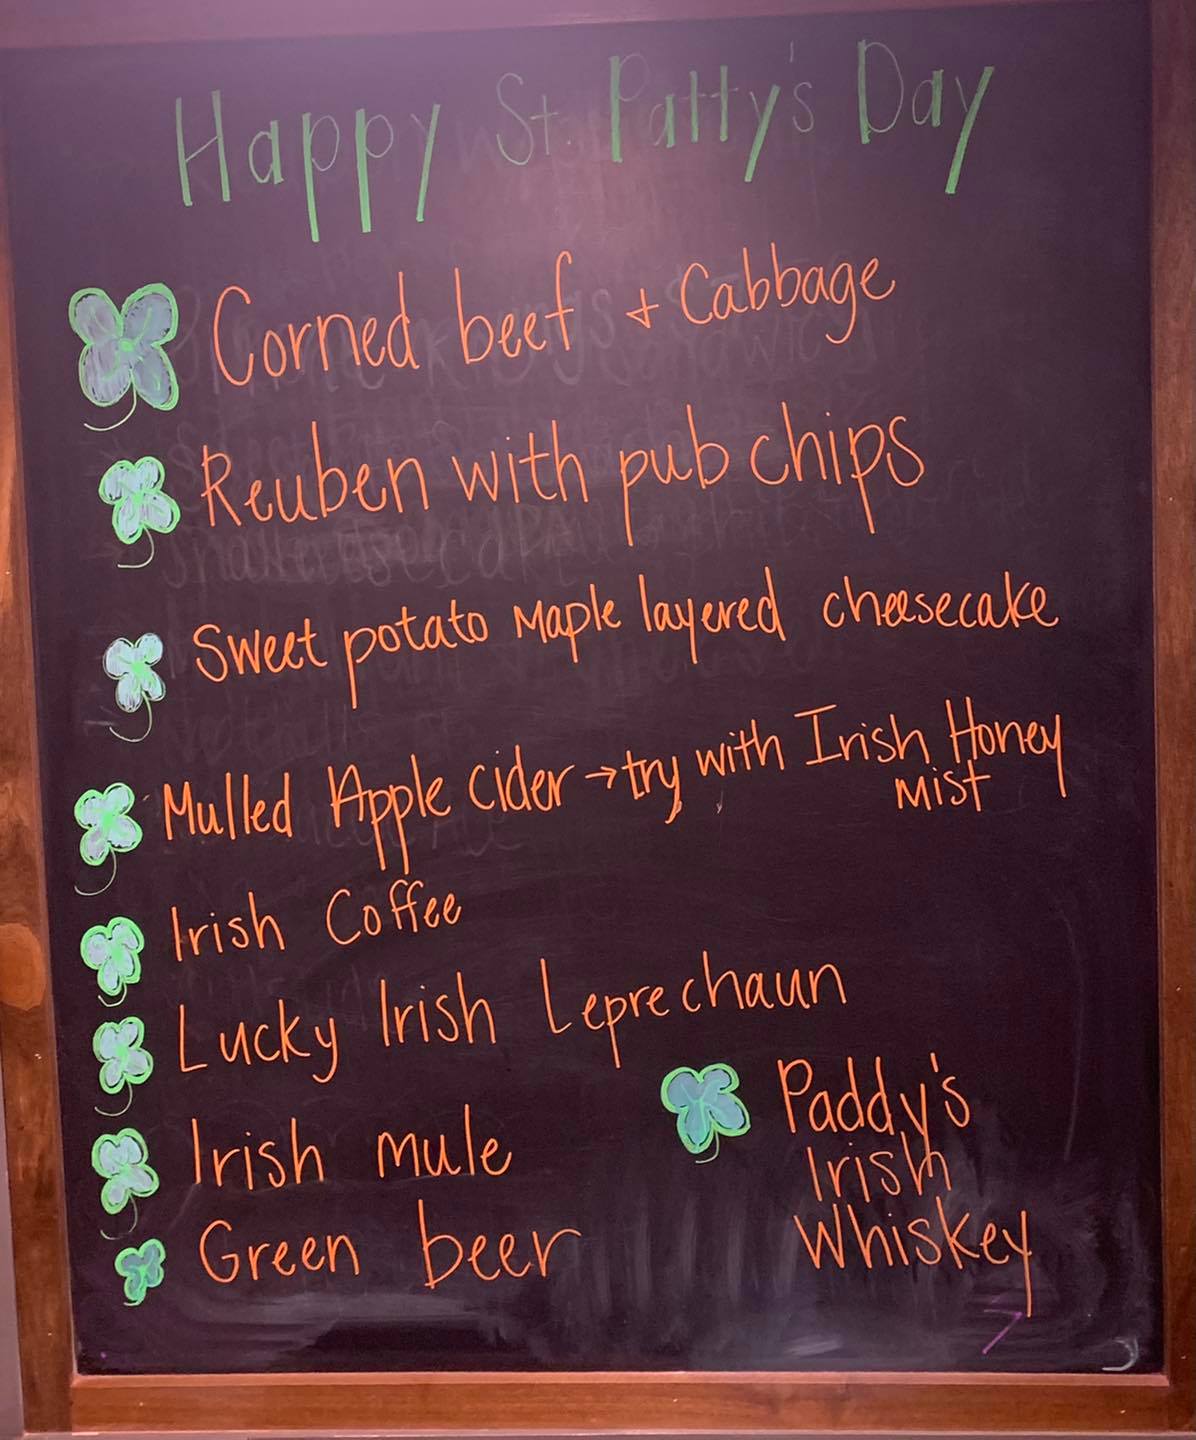 Happy St. Patty's Day
Corned beef + Cabbage
Reuben with pub chips
Sweet potato Maple layered cheesecake
Mulled Apple Cider → try with Irish Honey
Mist
Irish Coffee
Lucky Irish Leprechaun
Irish Mule
Green beer
Paddy's
Irish
Whiskey